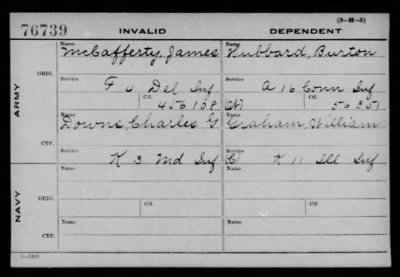 (3-II-5)
76739 INVALID DEPENDENT
Name Name
McCafferty, James Hubbard, Burton
ORIG.
Service Service
F 4 Del Inf A 16 Conn Inf
Ctf. Ctf.
456108 (W) 56351
ARMY
Name Name
Downs, Charles G Graham, William
CTF.
Service Service
K 3 Md Inf (C) K 11 Ill Inf
Name Name
ORIG.
Service Ctf. Service Ctf.
NAVY
Name Name
CTF.